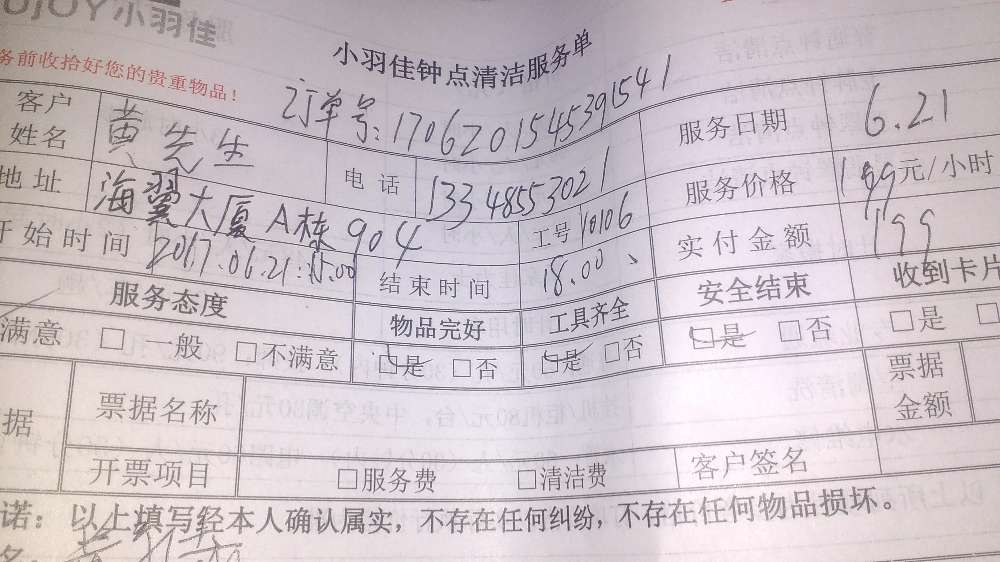 UJOY小羽佳
小羽佳钟点清洁服务单
务前收拾好您的贵重物品！
订单号:170620154539 1541
客户姓名 黄先生 电话 13348553021 服务日期 6.21
地址 海翼大厦A栋904 工号 10106 服务价格 199元/小时
开始时间 2017.06.21:15.00 结束时间 18.00、 实付金额 199
服务态度 物品完好 工具齐全 安全结束 收到卡片
满意 □一般 □不满意 □是 □否 □是 □否 □是 □否 □是 □
据 票据名称 票据金额
开票项目 □服务费 □清洁费 客户签名
诺：以上填写经本人确认属实，不存在任何纠纷，不存在任何物品损坏。
名: